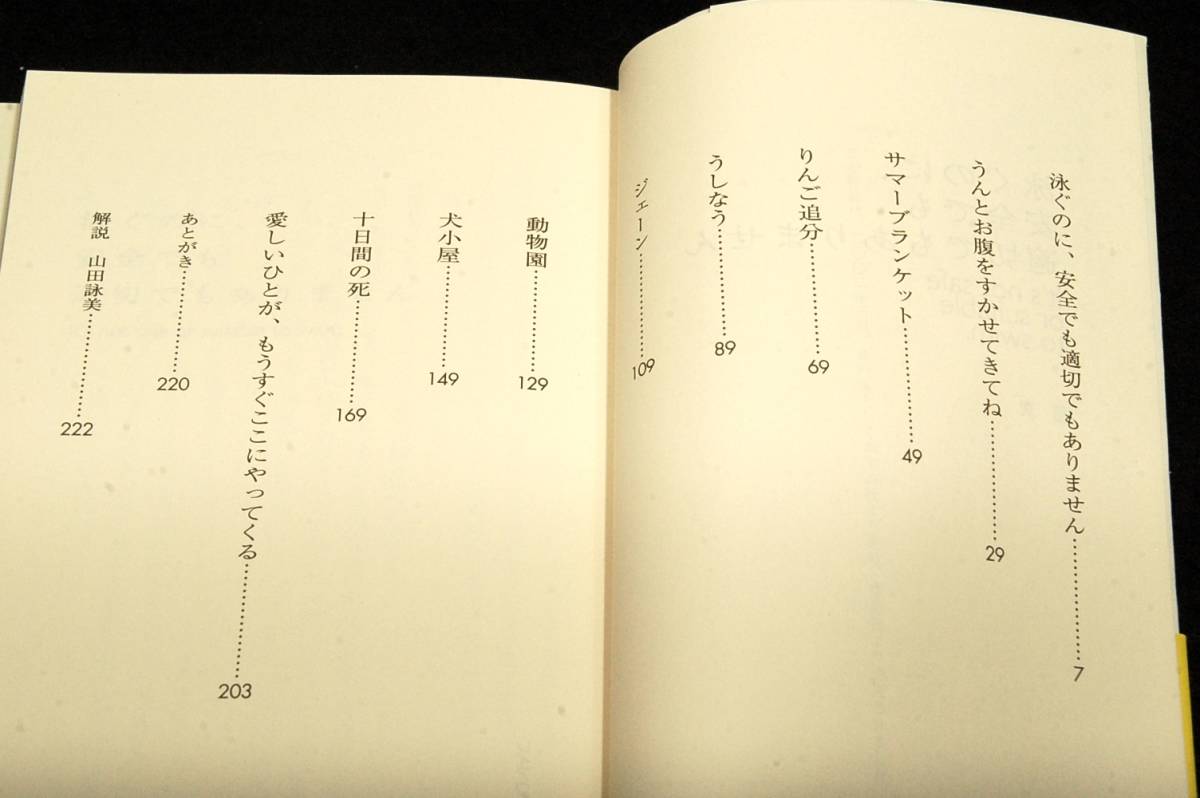 泳ぐのに、安全でも適切でもありません……………7
うんとお腹をすかせてきてね……………29
サマーブランケット……………49
りんご追分……………69
うしなう……………89
ジェーン……………109
動物園……………129
犬小屋……………149
十日間の死……………169
愛しいひとが、もうすぐここにやってくる……………203
あとがき……………220
解説 山田詠美……………222